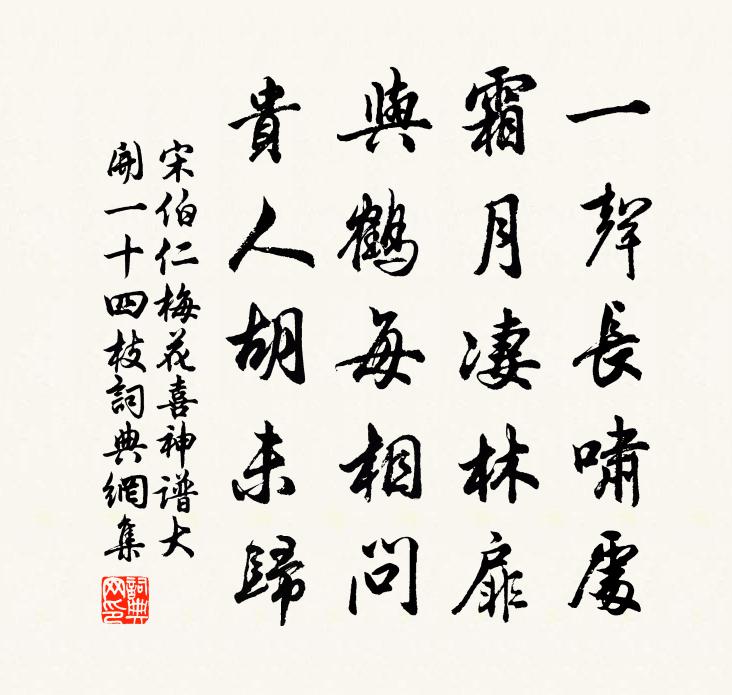 一聲長嘯處
霜月淒林扉
與鶴每相問
貴人胡未歸
宋伯仁梅花喜神譜大
開一十四枝詞典網集
詞典網印